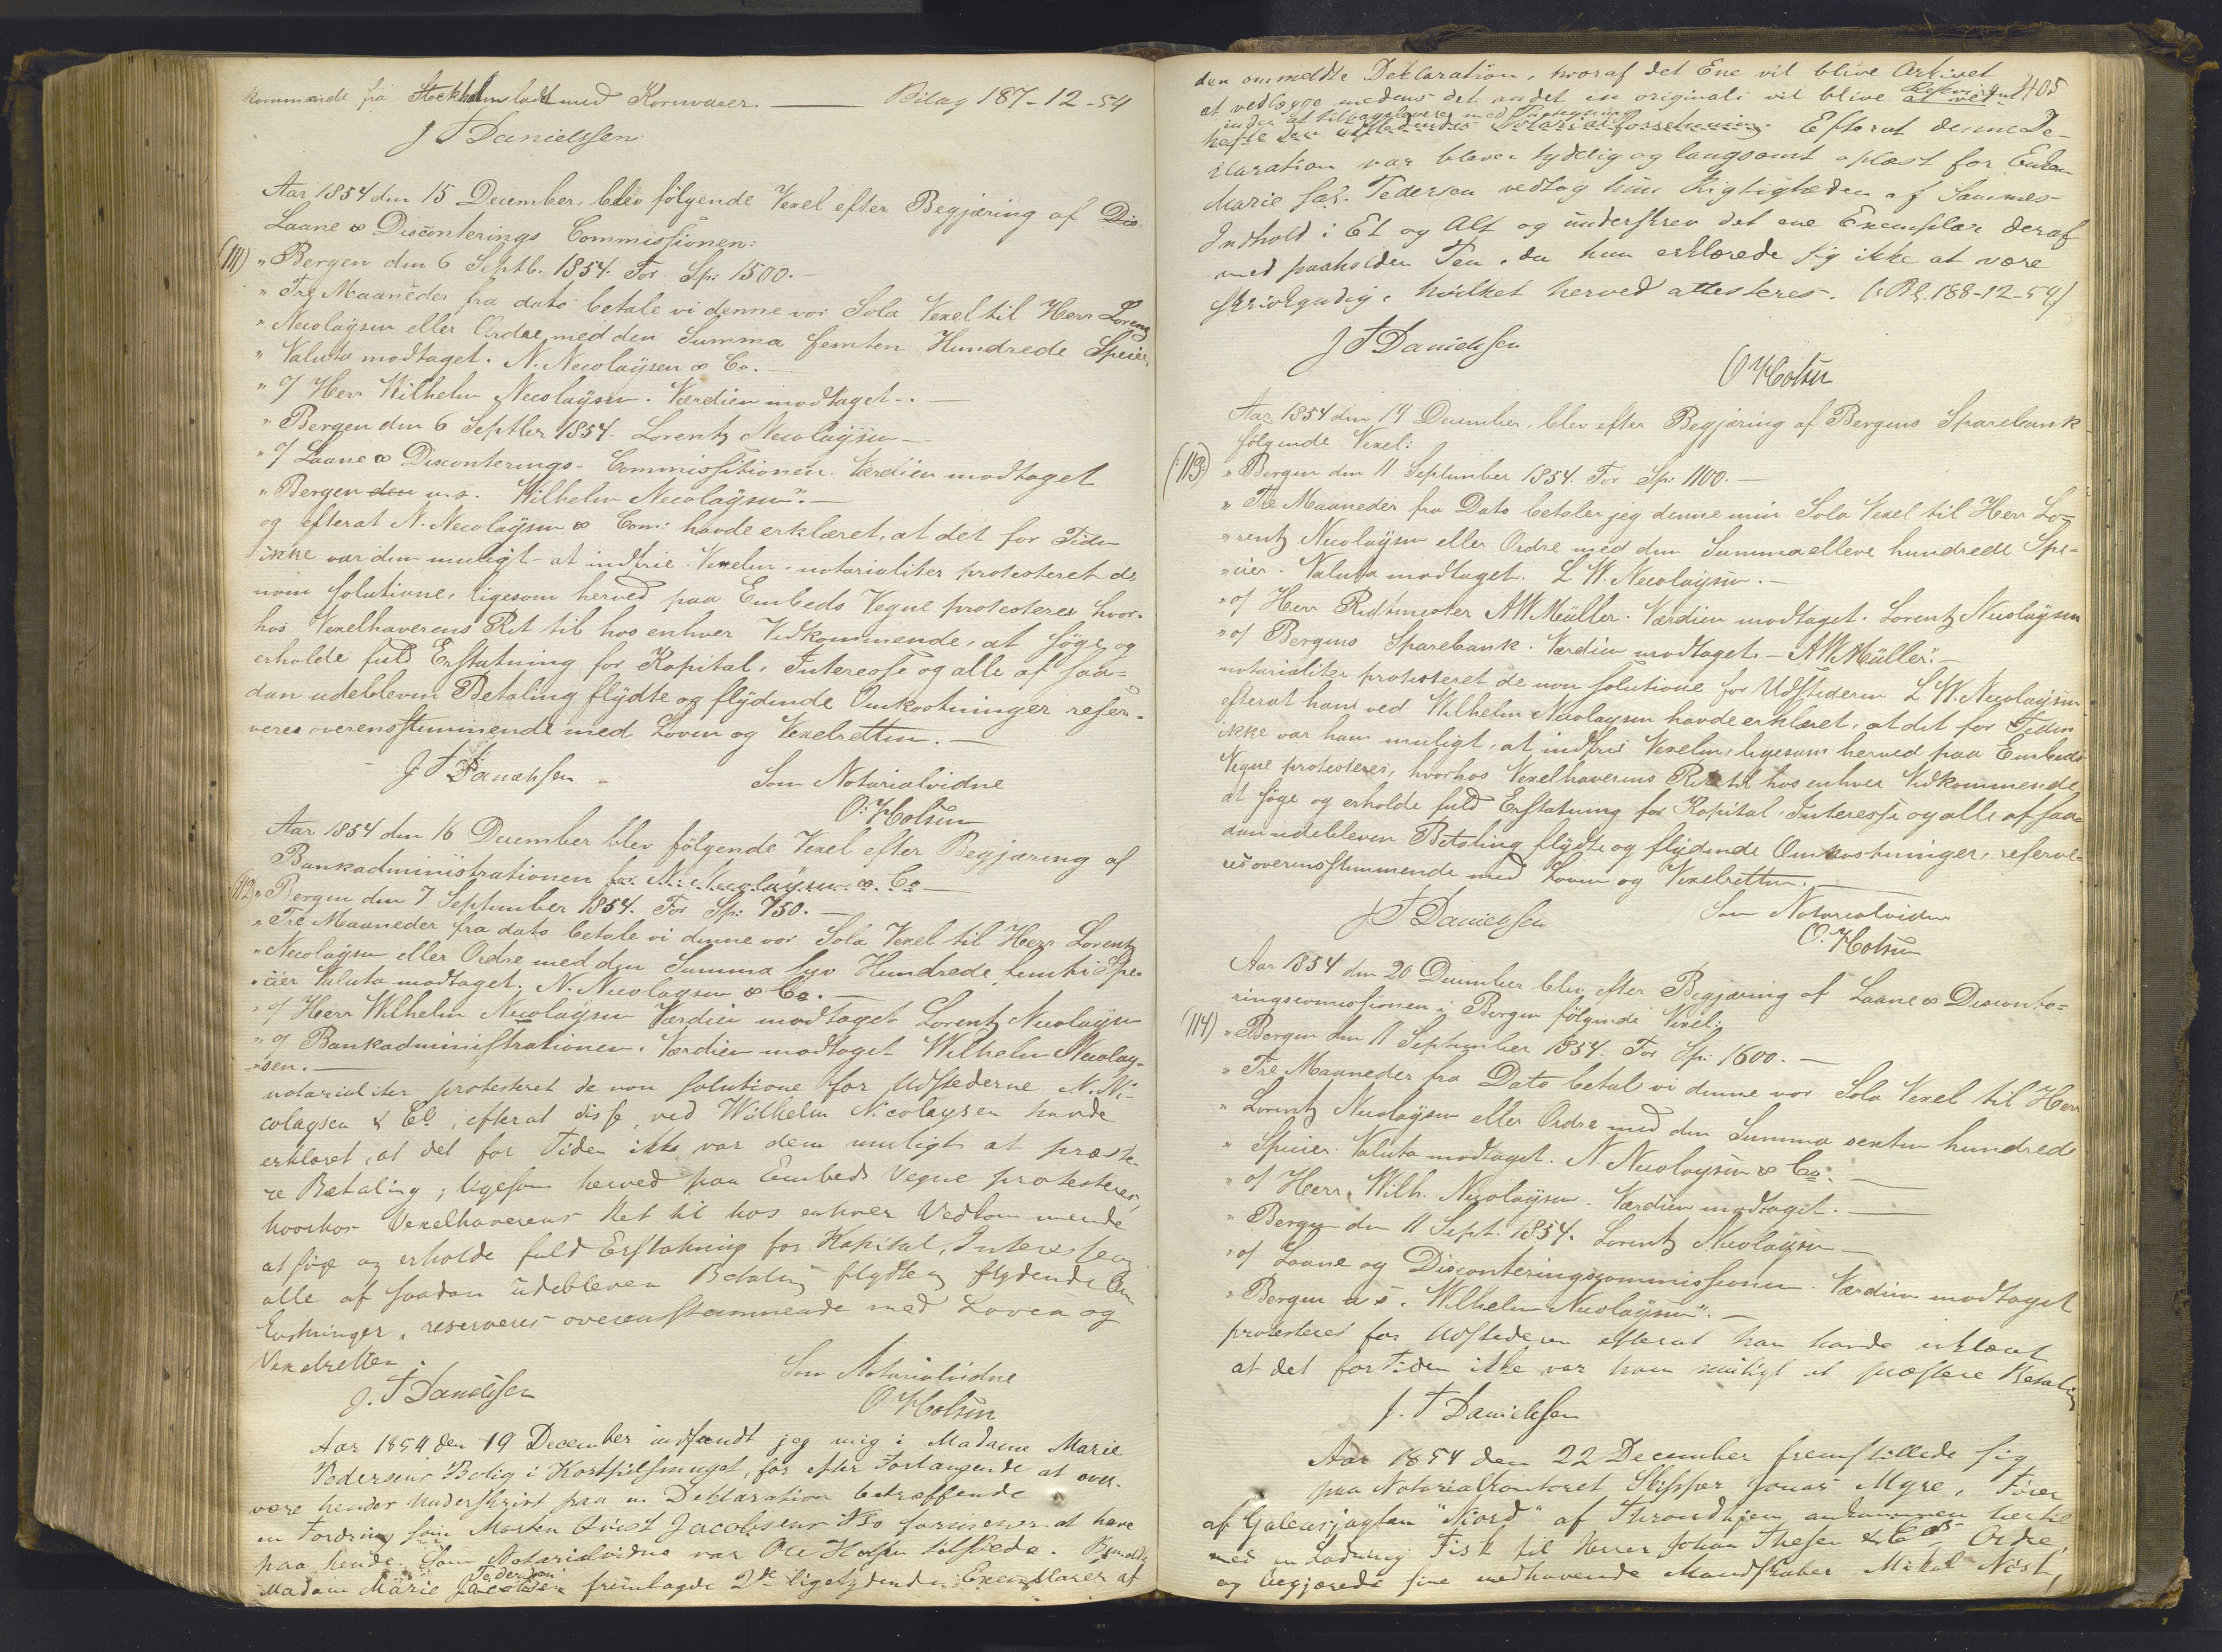 kommende fra Stockholm ladt med Kornvarer. — Bilag 187-12-54
J T Danielssen
Aar 1854 den 15 December, blev følgende Vexel efter Begjæring af Dis
Laane & Disconterings Commissionen:
(111) " Bergen den 6 Septb. 1854. For Sp: 1500.—
" Tre Maaneder fra dato betale vi denne vor Sola Vexel til Herr Lorentz
" Necolaÿsen eller Ordre, med den Summa femten Hundrede Species
" Valuta modtaget. N. Necolaÿsen & Co.—
" of Herr Wilhelm Necolaÿsen. Værdien modtaget.—
" Bergen den 6 Septbr 1854. Lorentz Necolaÿsen—
" of Laane & Disconterings-Commissitionen. Værdien modtaget
" Bergen den u.s. Wilhelm Necolaÿsen".—
og efterat N. Necolaÿsen & Com: havde erklæret, at det for Tiden
ikke var dem muligt at indfrie Vexelen, notarialiter protesteret de
non solutione, ligesom herved paa Embeds Vegne protesteres hvor-
hos Vexelhaverens Ret til hos enhver Vedkommende, at søge og
erholde fuld Erstatning for Kapital, Interesse og alle af saa-
dan udebleven Betaling flÿdte og flÿdende Omkostninger reser-
veres overensstemmende med Loven og Vexelretten.—
J T Danielssen
Som Notarialvidne
O. Holsen
Aar 1854 den 16 December blev følgende Vexel efter Begjæring af
Bankadministrationen for N. Necolaÿsen & Co—
(112) " Bergen den 7 September 1854. For Sp: 750.—
" Tre Maaneder fra dato betale vi denne vor Sola Vexel til Herr Lorentz
" Necolaÿsen eller Ordre med den Summa syv Hundrede femti Spe-
" cier Valuta modtaget. N. Necolaysen & Co.—
" of Herr Wilhelm Necolaÿsen Værdien modtaget Lorentz Necolaÿsen
" of Bankadministrationen. Værdien modtaget Wilhelm Necolay-
" sen.—
notarialiter protesteret de non solutione for Udstederne N. Ni-
colaysen & Co, efterat disse, ved Wilhelm Nicolaysen havde
erklæret, at det for Tiden ikke var dem muligt at præste-
re Betaling; ligesom herved paa Embeds Vegne protesteres,
hvorhos Vexelhaverens Ret til hos enhver Vedkommende
at søge og erholde fuld Erstatning for Kapital, Interesse og
alle af saadan udebleven Betaling flydte og flydende Om
kostninger, reserveres overensstemmende med Loven og
Vexelretten.
J. T Danielssen
Som Notarialvidne
O Holsen
Aar 1854 den 19 December indfandt jeg mig i Madame Marie
Pedersens Bolig i for efter Forlangende at over-
være hendes Underskrivt paa en Deklaration betræffende
en Fordring som Morten Jacobsens formener at have
paa hende. Som Notarialvidne var Ole Holsen tilstede. Bemeldte
Pedersen
Madam Marie Jacobsen fremlagde 2de ligelydende Exemplarer af
405
den ommeldte Deklaration, hvoraf det Ene vil blive Arkivet
at vedlægge medens det andet in originali vil blive at ved
inden at tilbageleveres med Paategning
hæfte den udstedendes Notarialforretning. Efterat denne De-
klaration var bleven tydelig og langsomt oplæst for Enken
Marie sal. Pedersen vedtog hun Rigtigheden af Sammes
Indhold i Et og Alt og underskrev det ene Exemplar deraf
med paaholden Pen, da hun erklærede sig ikke at være
skrivkyndig, hvilket herved attesteres. (: Blg. 188-12-54)
J T Danielssen
O Holsen
Aar 1854 den 19 December, blev efter Begjæring af Bergens Sparebank
følgende Vexel:
(:113:) " Bergen den 11 September 1854. For Sp: 1100.—
" Tre Maaneder fra Dato betaler jeg denne min Sola Vexel til Herr Lo-
" rentz Necolaÿsen eller Ordre med den Summa elleve hundrede Spe-
" cier. Valuta modtaget. L W. Necolaÿsen.—
" of Herr Ridtmester A W Müller. Værdien modtaget. Lorentz Necolaÿsen
" of Bergens Sparebank. Værdien modtaget.— A W Müller".—
notarialiter protesteret de non solutione for Udstederen L. W. Necolaÿsen
efterat han ved Wilhelm Necolaysen havde erklæret, at det for Tiden
ikke var ham muligt, at indfrie Vexelen, ligesom herved paa Embeds
Vegne protesteres, hvorhos Vexelhaverens Ret til hos enhver Vedkommende,
at søge og erholde fuld Erstatning for Kapital, Interesse og alle af saa-
dan udebleven Betaling flÿdte og flÿdende Omkostninger, reserve-
res overensstemmende med Loven og Vexelretten.—
J T Danielssen
Som Notarialvidne
O. Holsen
Aar 1854 den 20 December blev efter Begjæring af Laane & Disconte-
ringscomissionen i Bergen følgende Vexel:
(114) " Bergen den 11 September 1854. For Sp: 1600.—
" Tre Maaneder fra Dato betale vi denne vor Sola Vexel til Herr
" Lorentz Necolaÿsen eller Ordre med den Summa sexten hundrede
" Specier. Valuta modtaget. N. Necolaysen & Co.—
" of Herr Wilh. Necolaÿsen. Værdien modtaget.—
" Bergen den 11 Sept. 1854. Lorentz Necolaÿsen—
" of Laane og Disconteringscommissionen. Værdien modtaget
" Bergen u.s. Wilhelm Necolaÿsen".—
protesteret for Udstederen efterat han havde erklæret
at det for Tiden ikke var ham muligt at præstere Betaling
J. T Danielssen
Aar 1854 den 22 December fremstillede sig
paa Notarialkontoret Skipper Jonas Myre, Fører
af Galeasjagten "Njord" af Throndhjem ankommen hertil
med en Ladning Fisk til Herrer Johan Thesen & Co's Ordre,
og begjærede sine medhavende Mandskaber Mikal Nøst,